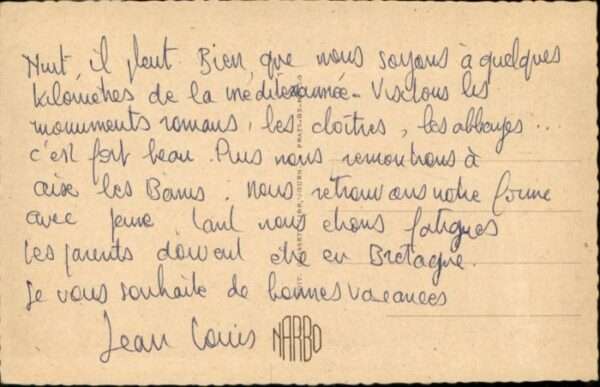 Nuit il pleut. Bien que nous soyons à quelques
kilomètres de la méditerannée. Visitons les
monuments romans, les cloîtres, les abbayes ...
c'est fort beau. Puis nous remontrons à
les Bains. nous retrouvons notre forme
avec peine, tant nous étions fatigués
les parents doivent être en Bretagne.
Je vous souhaite de bonnes vacances
Jean Louis NARBO